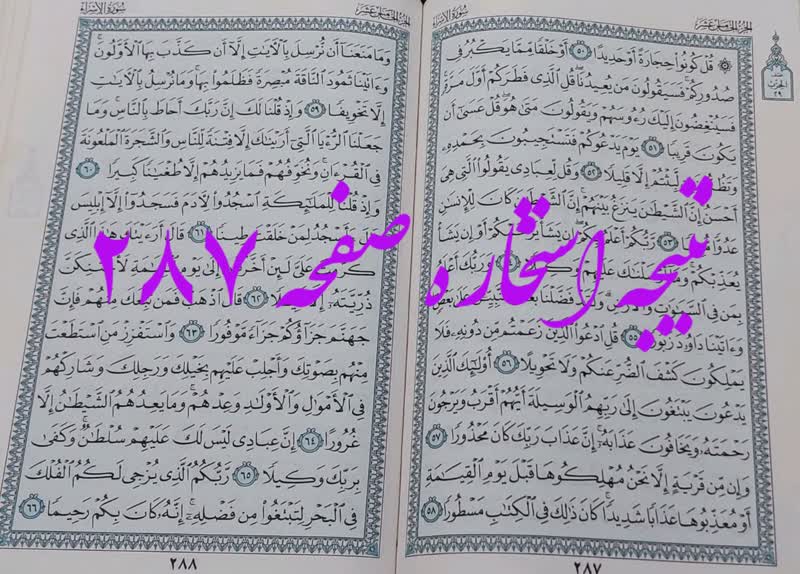 الجزء الخامس عشر
سورة الإسراء
۞ قُلْ كُونُوا۟ حِجَارَةً أَوْ حَدِيدًا ٥٠ أَوْ خَلْقًا مِّمَّا يَكْبُرُ فِى
صُدُورِكُمْ فَسَيَقُولُونَ مَن يُعِيدُنَا قُلِ ٱلَّذِى فَطَرَكُمْ أَوَّلَ مَرَّةٍ
فَسَيُنْغِضُونَ إِلَيْكَ رُءُوسَهُمْ وَيَقُولُونَ مَتَىٰ هُوَ قُلْ عَسَىٰٓ أَن
يَكُونَ قَرِيبًا ٥١ يَوْمَ يَدْعُوكُمْ فَتَسْتَجِيبُونَ بِحَمْدِهِۦ
لَّبِثْتُمْ إِلَّا قَلِيلًا ٥٢ وَقُل لِّعِبَادِى يَقُولُوا۟ ٱلَّتِى هِىَ
أَحْسَنُ إِنَّ ٱلشَّيْطَٰنَ يَنزَغُ بَيْنَهُمْ إِنَّ ٱلشَّيْطَٰنَ كَانَ لِلْإِنسَٰنِ
عَدُوًّا ٥٣ رَّبُّكُمْ أَعْلَمُ بِكُمْ إِن يَشَأْ يَرْحَمْكُمْ أَوْ إِن يَشَأْ
يُعَذِّبْكُمْ وَمَآ أَرْسَلْنَٰكَ عَلَيْهِمْ وَرَبُّكَ أَعْلَمُ
بِمَن فِى ٱلسَّمَٰوَٰتِ وَٱلْأَرْضِ فَضَّلْنَا بَعْضَ ٱلنَّبِيِّـۧنَ عَلَىٰ بَعْضٍ
وَءَاتَيْنَا دَاوُۥدَ زَبُورًا ٥٥ قُلِ ٱدْعُوا۟ ٱلَّذِينَ زَعَمْتُم مِّن دُونِهِۦ فَلَا
يَمْلِكُونَ كَشْفَ ٱلضُّرِّ عَنكُمْ وَلَا تَحْوِيلًا ٥٦ أُو۟لَٰٓئِكَ ٱلَّذِينَ
يَدْعُونَ يَبْتَغُونَ إِلَىٰ رَبِّهِمُ ٱلْوَسِيلَةَ أَيُّهُمْ أَقْرَبُ وَيَرْجُونَ
رَحْمَتَهُۥ وَيَخَافُونَ عَذَابَهُۥٓ إِنَّ عَذَابَ رَبِّكَ كَانَ مَحْذُورًا ٥٧
وَإِن مِّن قَرْيَةٍ إِلَّا نَحْنُ مُهْلِكُوهَا قَبْلَ يَوْمِ ٱلْقِيَٰمَةِ
أَوْ مُعَذِّبُوهَا عَذَابًا شَدِيدًا كَانَ ذَٰلِكَ فِى ٱلْكِتَٰبِ مَسْطُورًا ٥٨
٢٨٧
الجزء الخامس عشر
سورة الإسراء
وَمَا مَنَعَنَآ أَن نُّرْسِلَ بِٱلْـَٔايَٰتِ إِلَّآ أَن كَذَّبَ بِهَا ٱلْأَوَّلُونَ
وَءَاتَيْنَا ثَمُودَ ٱلنَّاقَةَ مُبْصِرَةً فَظَلَمُوا۟ بِهَا وَمَا نُرْسِلُ بِٱلْـَٔايَٰتِ
إِلَّا تَخْوِيفًا ٥٩ وَإِذْ قُلْنَا لَكَ إِنَّ رَبَّكَ أَحَاطَ بِٱلنَّاسِ وَمَا
جَعَلْنَا ٱلرُّءْيَا ٱلَّتِىٓ أَرَيْنَٰكَ إِلَّا فِتْنَةً لِّلنَّاسِ وَٱلشَّجَرَةَ ٱلْمَلْعُونَةَ
فِى ٱلْقُرْءَانِ وَنُخَوِّفُهُمْ فَمَا يَزِيدُهُمْ إِلَّا طُغْيَٰنًا كَبِيرًا ٦٠
وَإِذْ قُلْنَا لِلْمَلَٰٓئِكَةِ ٱسْجُدُوا۟ لِـَٔادَمَ فَسَجَدُوٓا۟ إِلَّآ إِبْلِيسَ
قَالَ ءَأَسْجُدُ لِمَنْ خَلَقْتَ طِينًا ٦١ قَالَ أَرَءَيْتَكَ هَٰذَا ٱلَّذِى
كَرَّمْتَ عَلَىَّ لَئِنْ أَخَّرْتَنِ إِلَىٰ يَوْمِ ٱلْقِيَٰمَةِ لَأَحْتَنِكَنَّ
ذُرِّيَّتَهُۥٓ إِلَّا قَلِيلًا ٦٢ قَالَ ٱذْهَبْ فَمَن تَبِعَكَ مِنْهُمْ فَإِنَّ
جَهَنَّمَ جَزَآؤُكُمْ جَزَآءً مَّوْفُورًا ٦٣ وَٱسْتَفْزِزْ مَنِ ٱسْتَطَعْتَ
مِنْهُم بِصَوْتِكَ وَأَجْلِبْ عَلَيْهِم بِخَيْلِكَ وَرَجِلِكَ وَشَارِكْهُمْ
فِى ٱلْأَمْوَٰلِ وَٱلْأَوْلَٰدِ وَعِدْهُمْ وَمَا يَعِدُهُمُ ٱلشَّيْطَٰنُ إِلَّا
غُرُورًا ٦٤ إِنَّ عِبَادِى لَيْسَ لَكَ عَلَيْهِمْ سُلْطَٰنٌ وَكَفَىٰ
بِرَبِّكَ وَكِيلًا ٦٥ رَّبُّكُمُ ٱلَّذِى يُزْجِى لَكُمُ ٱلْفُلْكَ
فِى ٱلْبَحْرِ لِتَبْتَغُوا۟ مِن فَضْلِهِۦٓ إِنَّهُۥ كَانَ بِكُمْ رَحِيمًا ٦٦
٢٨٨
نتیجه استخاره صفحه ۲۸۷